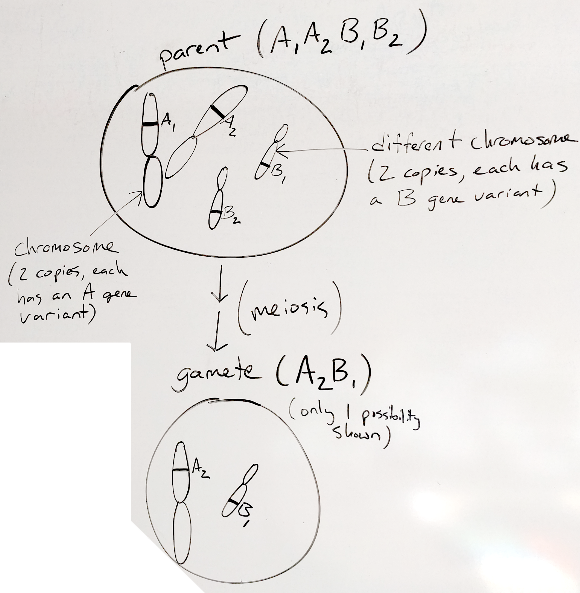 parent (A₁A₂B₁B₂)
A₁
A₂
B₁
B₂
different chromosome
(2 copies, each has
a B gene variant)
chromosome
(2 copies, each
has an A gene
variant)
(meiosis)
gamete (A₂B₁)
(only 1 possibility
shown)
A₂
B₁